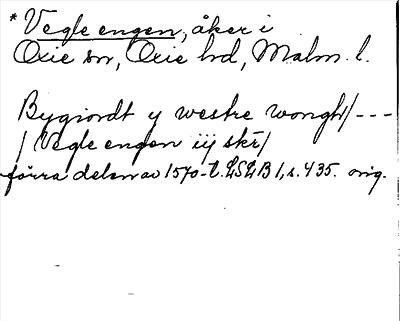 * Vegle engen, åker i
Oxie sn, Oxie hd, Malm. l.
Bygiordt y westre wongh/ ---
/ Vegle engen iij skr/
förra delen av 1570-t. LSLB 1, s. 435. orig.